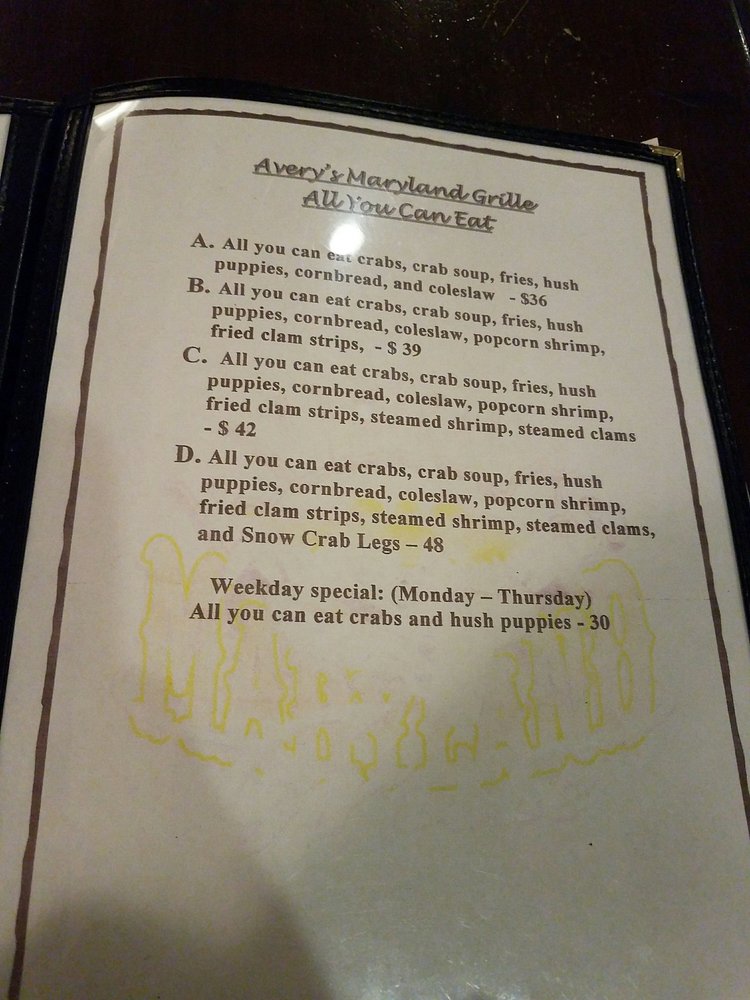 Avery's Maryland Grille
All You Can Eat
A. All you can eat crabs, crab soup, fries, hush
puppies, cornbread, and coleslaw - $36
B. All you can eat crabs, crab soup, fries, hush
puppies, cornbread, coleslaw, popcorn shrimp,
fried clam strips, - $ 39
C. All you can eat crabs, crab soup, fries, hush
puppies, cornbread, coleslaw, popcorn shrimp,
fried clam strips, steamed shrimp, steamed clams
- $ 42
D. All you can eat crabs, crab soup, fries, hush
puppies, cornbread, coleslaw, popcorn shrimp,
fried clam strips, steamed shrimp, steamed clams,
and Snow Crab Legs – 48
Weekday special: (Monday – Thursday)
All you can eat crabs and hush puppies - 30